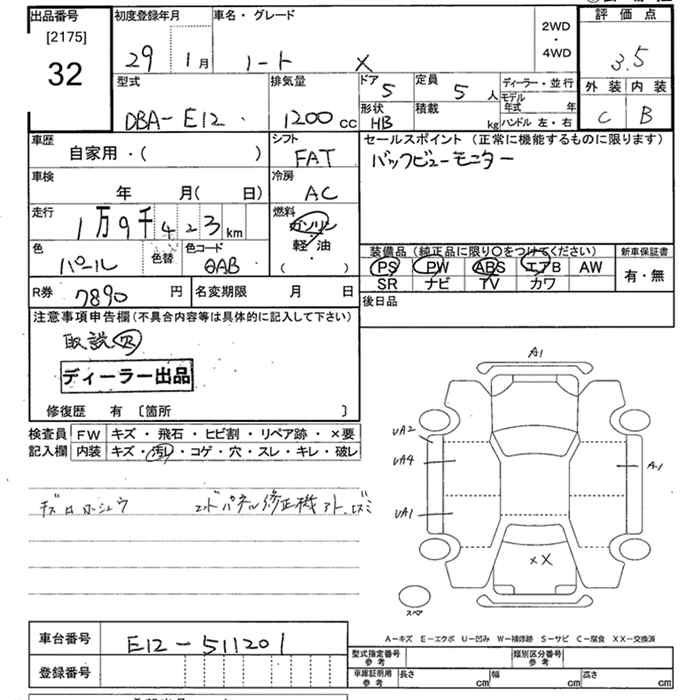 出品番号 初度登録年月 車名・グレード 評価点
[2175] 2WD
32 29 1月 ノート X ・ 4WD 3.5
外装 内装
型式 排気量 ドア 5 定員 5人 ディーラー・並行
モデル年式 年
DBA-E12 1200cc 形状 HB 積載 kg ハンドル 左・右 C B
車歴 シフト セールスポイント(正常に機能するものに限ります)
自家用・( ) FAT バックビューモニター
車検 冷房
年 月( 日) AC
走行 燃料
1万9千423km ガソリン
・
軽油
色 色替 色コード ( ) 装備品(純正品に限り○をつけてください) 新車保証書
パール QAB PS PW ABS エアB AW 有・無
R券 7890円 名変期限 月 日 SR ナビ TV カワ
後日品
注意事項申告欄(不具合内容等は具体的に記入して下さい)
取説
ディーラー出品
修復歴 有 〔箇所 〕
検査員 FW キズ・飛石・ヒビ割・リペア跡・×要
記入欄 内装 キズ・汚レ・コゲ・穴・スレ・キレ・破レ
エンドパネル修正機アト
A1
UA2
UA4
A1
UA1
XX
スペア
A―キズ E―エクボ U―凹み W―補修跡 S―サビ C―腐食 XX―交換済
車台番号 E12-511201
型式指定番号 参考 類別区分番号 参考
登録番号 車庫証明用 参考 長さ cm 幅 cm 高さ cm